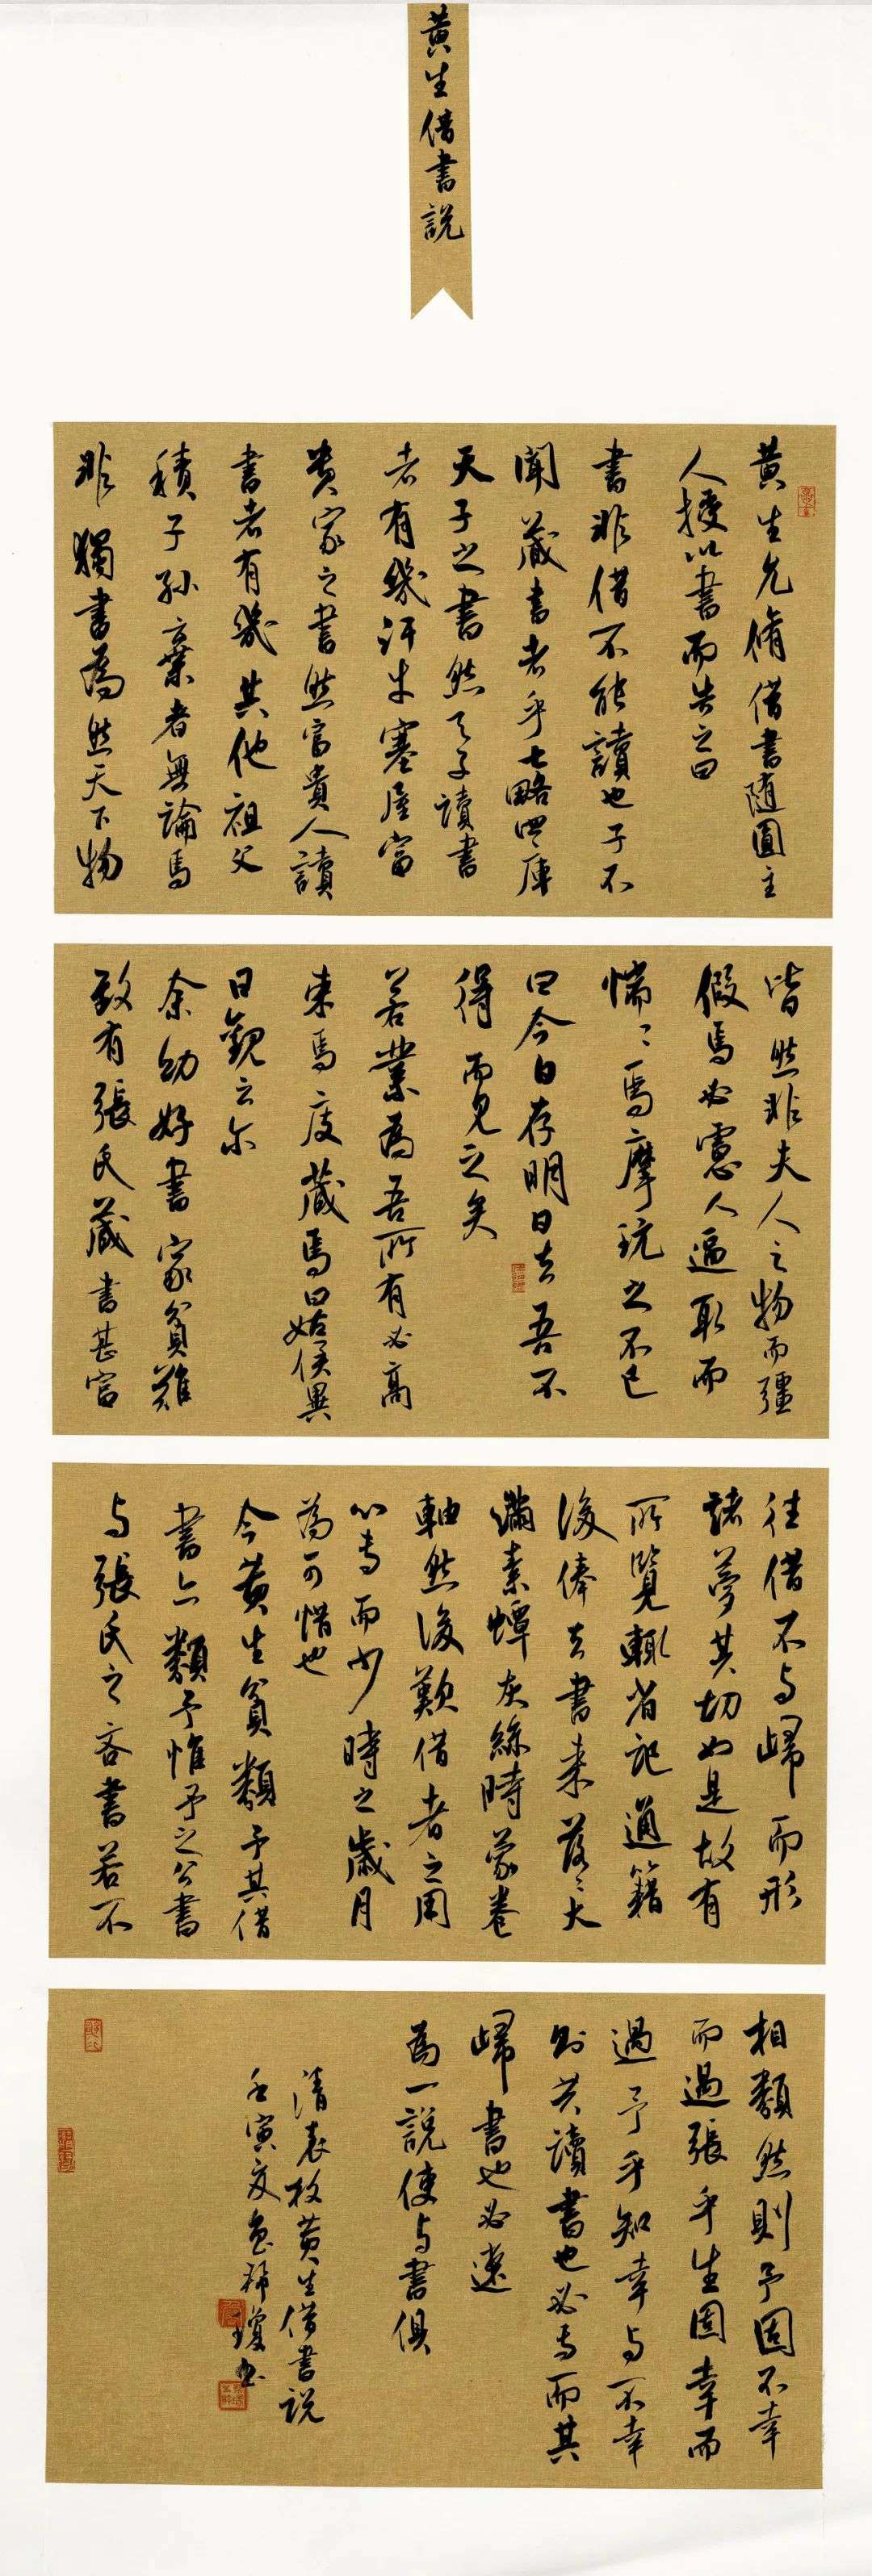 黄生借書說
黄生允脩借書随園主
人授以書而告之曰
書非借不能讀也子不
聞藏書者乎七略四庫
天子之書然天子讀書
者有幾汗牛塞屋富
貴家之書然富貴人讀
書者有幾其他祖父
積子孫棄者無論焉
非獨書為然天下物
皆然非夫人之物而疆
假焉必慮人逼取而
惴〻焉摩玩之不已
曰今日存明日去吾不
得而見之矣
若業為吾所有必高
束焉庋藏焉曰姑俟異
日觀云尔
余幼好書家貧難
致有張氏藏書甚富
往借不与歸而形
諸夢其切如是故有
所覽輒省記通籍
後俸去書来落〻大
滿素蟫灰絲時蒙卷
軸然後歎借者之用
心专而少時之歲月
為可惜也
今黄生貧類予其借
書亦類予惟予之公書
与張氏之吝書若不
相類然則予固不幸
而遇張乎生固幸而
遇予乎知幸与不幸
則其讀書也必专而其
歸書也必速
為一說使与書俱
清袁枚黄生借書説
壬寅夏
瓊書